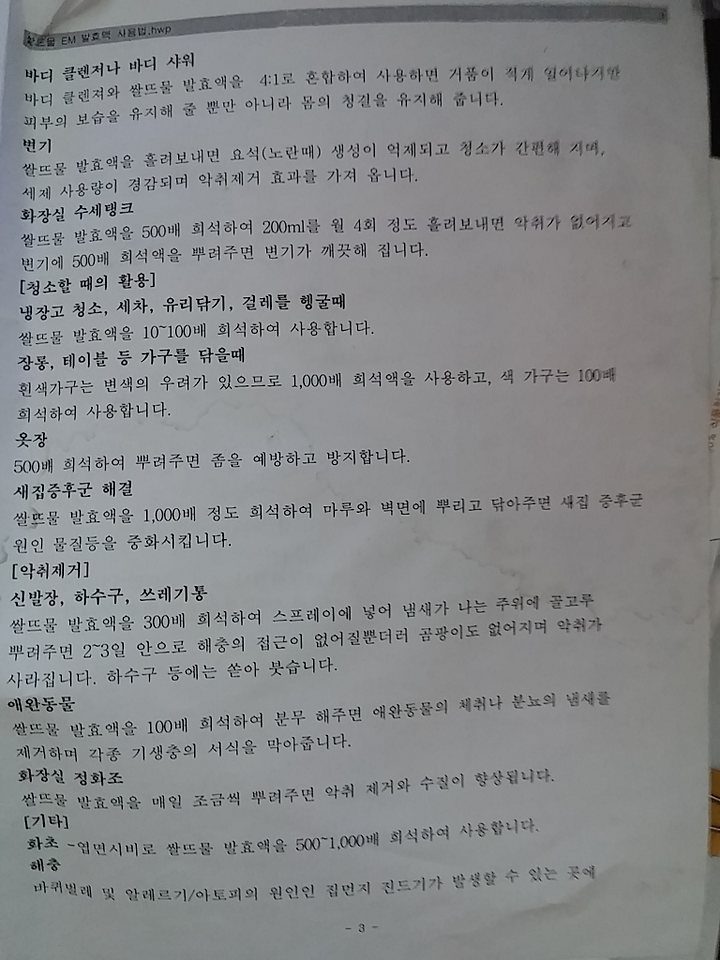 쌀뜨물 EM 발효액 사용법.hwp
바디 클렌저나 바디 샤워
바디 클렌져와 쌀뜨물 발효액을 4:1로 혼합하여 사용하면 거품이 적게 일어나지만
피부의 보습을 유지해 줄 뿐만 아니라 몸의 청결을 유지해 줍니다.
변기
쌀뜨물 발효액을 흘려보내면 요석(노란때) 생성이 억제되고 청소가 간편해 지며,
세제 사용량이 경감되며 악취제거 효과를 가져 옵니다.
화장실 수세탱크
쌀뜨물 발효액을 500배 희석하여 200ml를 월 4회 정도 흘려보내면 악취가 없어지고
변기에 500배 희석액을 뿌려주면 변기가 깨끗해 집니다.
[청소할 때의 활용]
냉장고 청소, 세차, 유리닦기, 걸레를 헹굴때
쌀뜨물 발효액을 10~100배 희석하여 사용합니다.
장롱, 테이블 등 가구를 닦을때
흰색가구는 변색의 우려가 있으므로 1,000배 희석액을 사용하고, 색 가구는 100배
희석하여 사용합니다.
옷장
500배 희석하여 뿌려주면 좀을 예방하고 방지합니다.
새집증후군 해결
쌀뜨물 발효액을 1,000배 정도 희석하여 마루와 벽면에 뿌리고 닦아주면 새집 증후군
원인 물질등을 중화시킵니다.
[악취제거]
신발장, 하수구, 쓰레기통
쌀뜨물 발효액을 300배 희석하여 스프레이에 넣어 냄새가 나는 주위에 골고루
뿌려주면 2~3일 안으로 해충의 접근이 없어질뿐더러 곰팡이도 없어지며 악취가
사라집니다. 하수구 등에는 쏟아 붓습니다.
애완동물
쌀뜨물 발효액을 100배 희석하여 분무 해주면 애완동물의 체취나 분뇨의 냄새를
제거하며 각종 기생충의 서식을 막아줍니다.
화장실 정화조
쌀뜨물 발효액을 매일 조금씩 뿌려주면 악취 제거와 수질이 향상됩니다.
[기타]
화초 ~엽면시비로 쌀뜨물 발효액을 500~1,000배 희석하여 사용합니다.
해충
바퀴벌레 및 알레르기/아토피의 원인인 집먼지 진드기가 발생할 수 있는 곳에
- 3 -